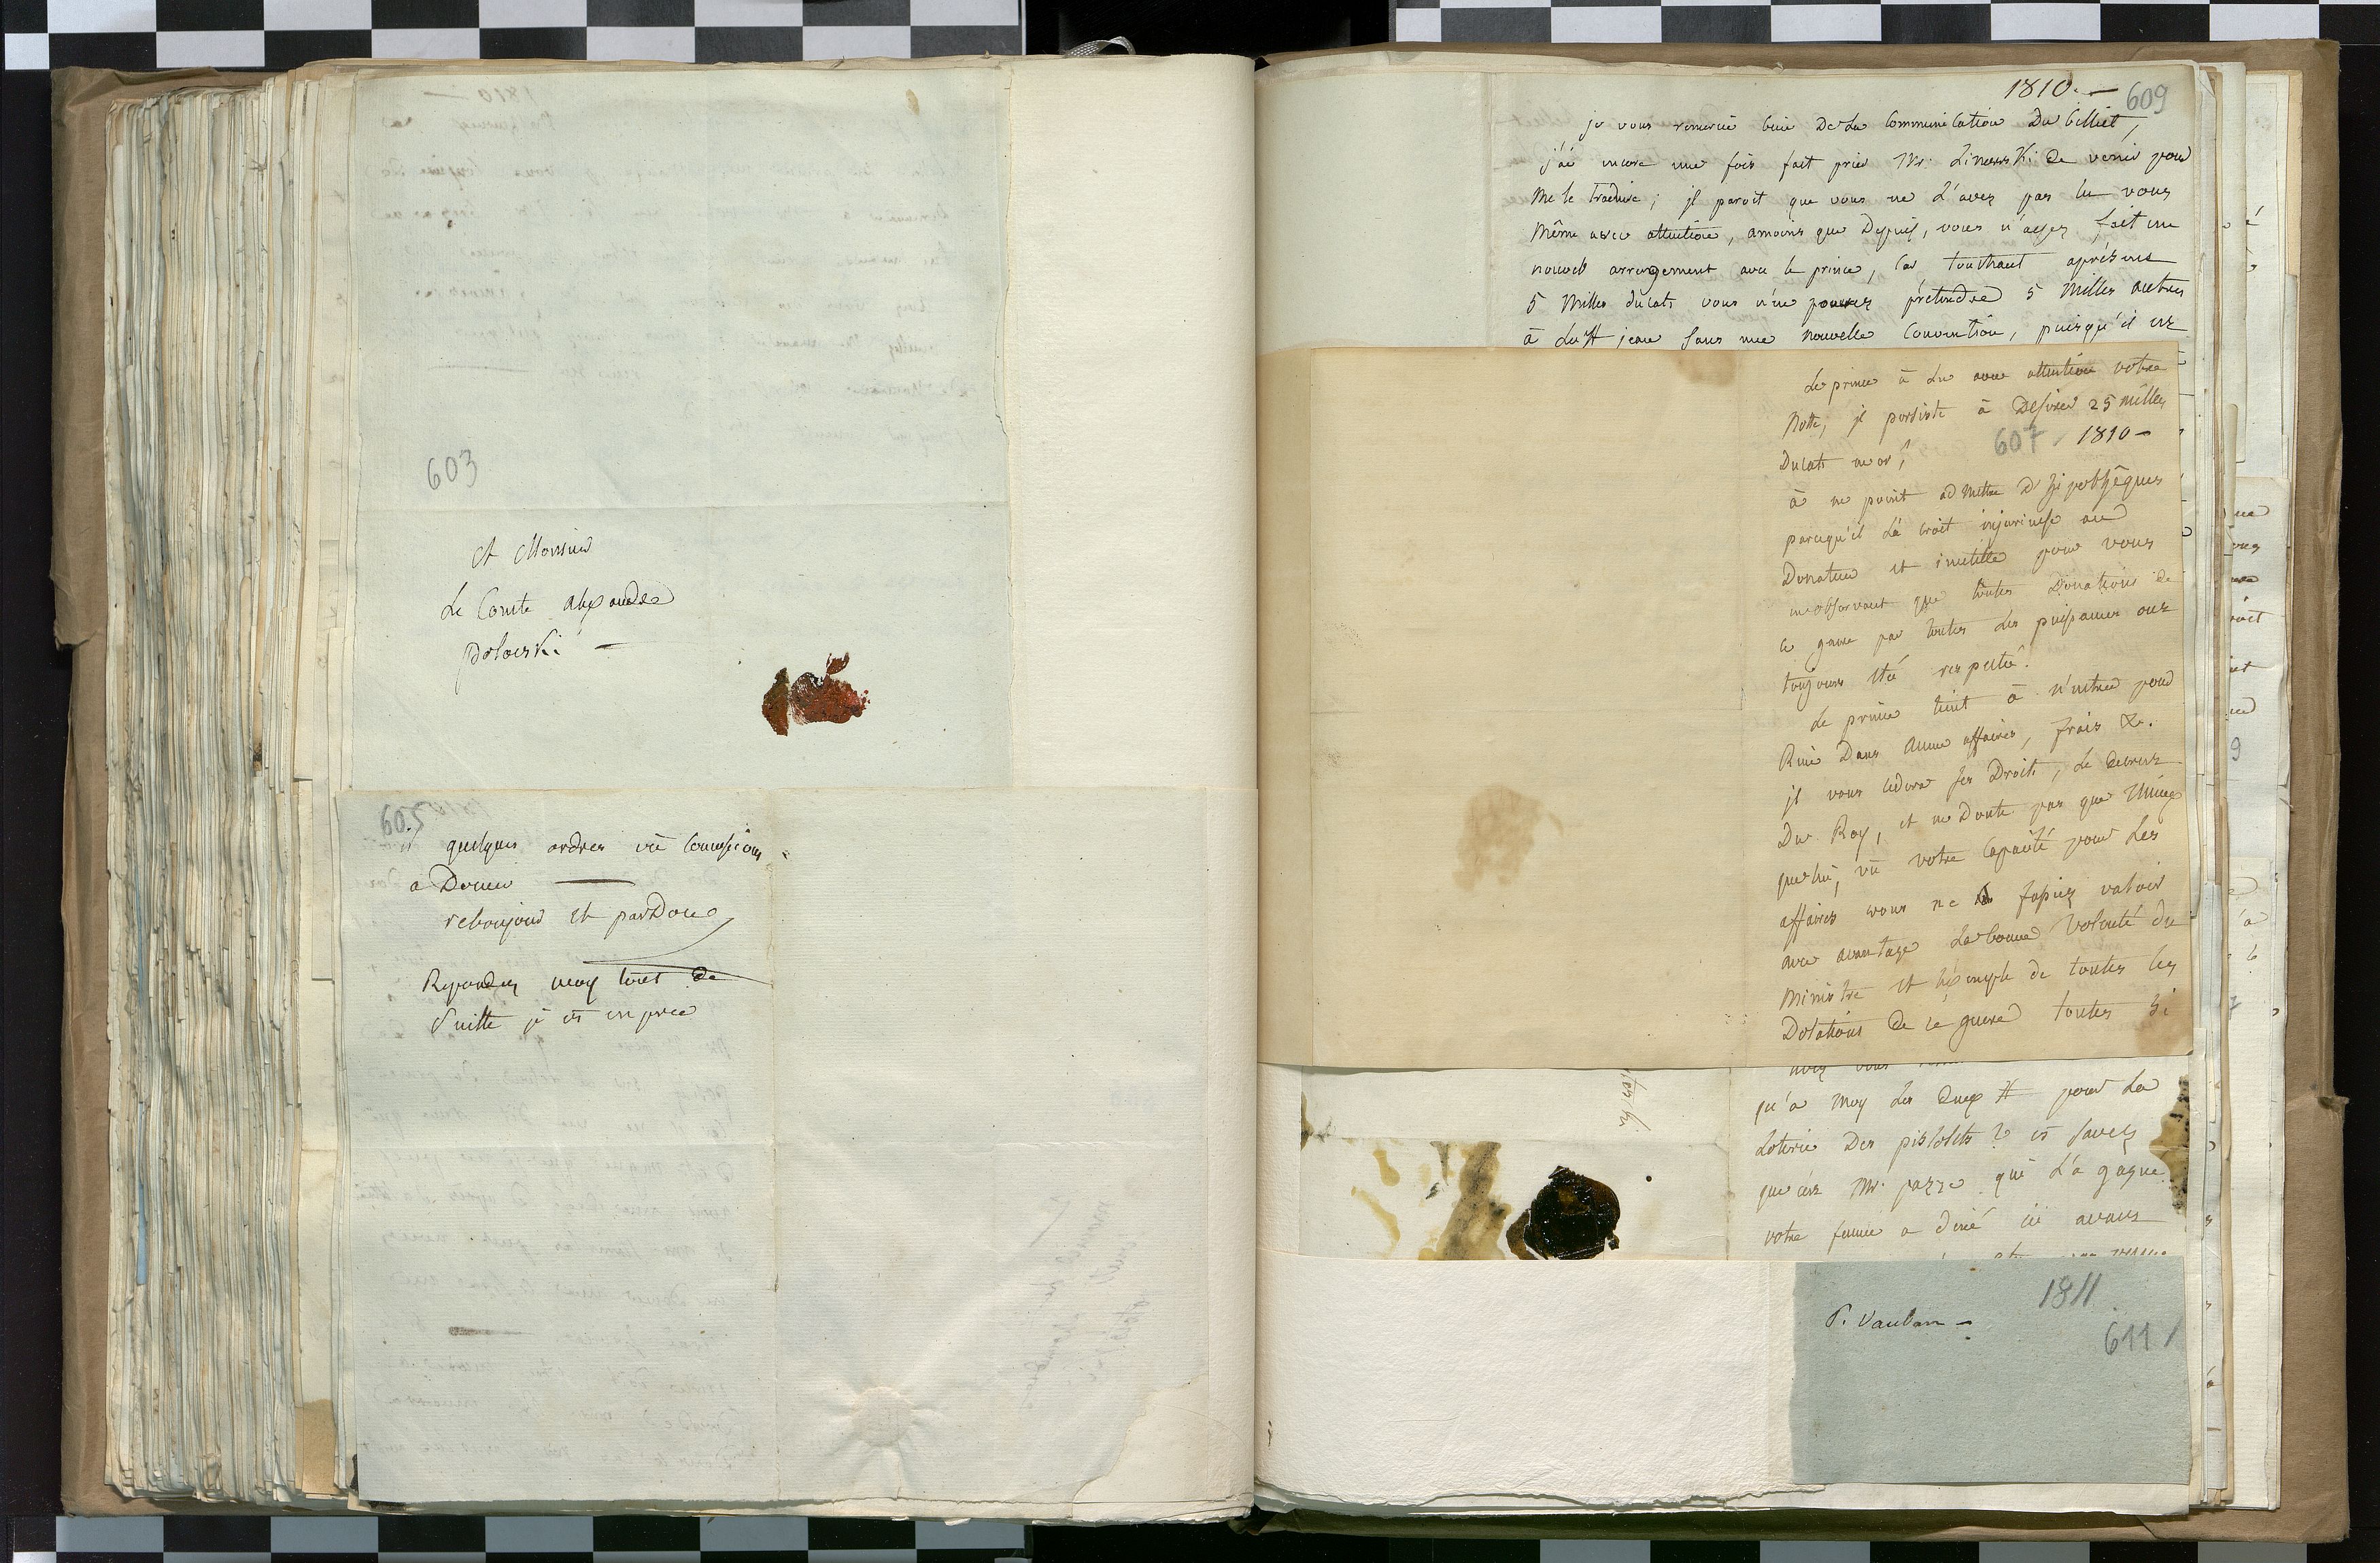 603
A Monsieur
Le Comte alexandre
potocki —
605
quelques ordres
a Donner —
rebonjour et pardon
Repondez moy tout de
Suitte je vs en prie
1810. — 609
je vous remercie bien De La Communication Du billiet,
j'ai encore une fois fait prier Mr. Linowski de venir pour
Me le traduire; jl paroit que vous ne L'avez pas lu vous
Même avec attention, amoins que Depuis, vous n'ayez fait un
nouveb arrangement avec le prince, car touchant
5 Milles ducats vous n'en pouvez prétendre 5 Milles autres
à La St jean sans une nouvelle Convention, puisqu'il
Le prince à Lu avec attention votre
Notte, jl persiste à Désirer 25 milles
607 1810 —
Ducats en or,
à ne point admettre d'hipothêques
parcequ'il La croit injurieuse au
Donateur et inutille pour vous
observant que toutes Donations de
ce genre par toutes Les puissances ont
toujours été respecté.
Le prince tient à n'entrer pour
Rien Dans Aucune affaires, frais &c.
jl vous cedera ses Droits, Le
Du Roy, et ne Doute pas que Mieux
que lui, vû votre Capacité pour Les
affaires vous ne fassiez valoir
avec avantage La bonne Volonté du
Ministre et L'exemple de toutes les
Dotations De ce genre toutes
avez vous
qu'a Moy Les Deux # pour La
Loterie Des pistolets? vs savez
que c'est Mr. pazze qui L'a gagné
votre femme a diné ici
1811
P. Vauban —
611